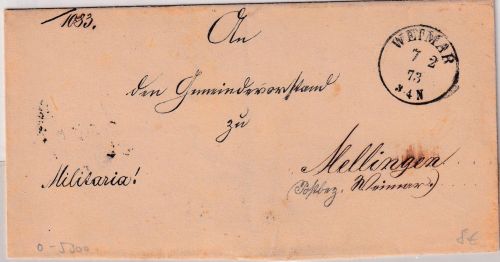 1083.
An
WEIMAR
7 2
73
3 4 N
den Gemeindevorstand
zu
Mellingen
(Postbez. Weimar.)
Militaria!
0-5900
8€